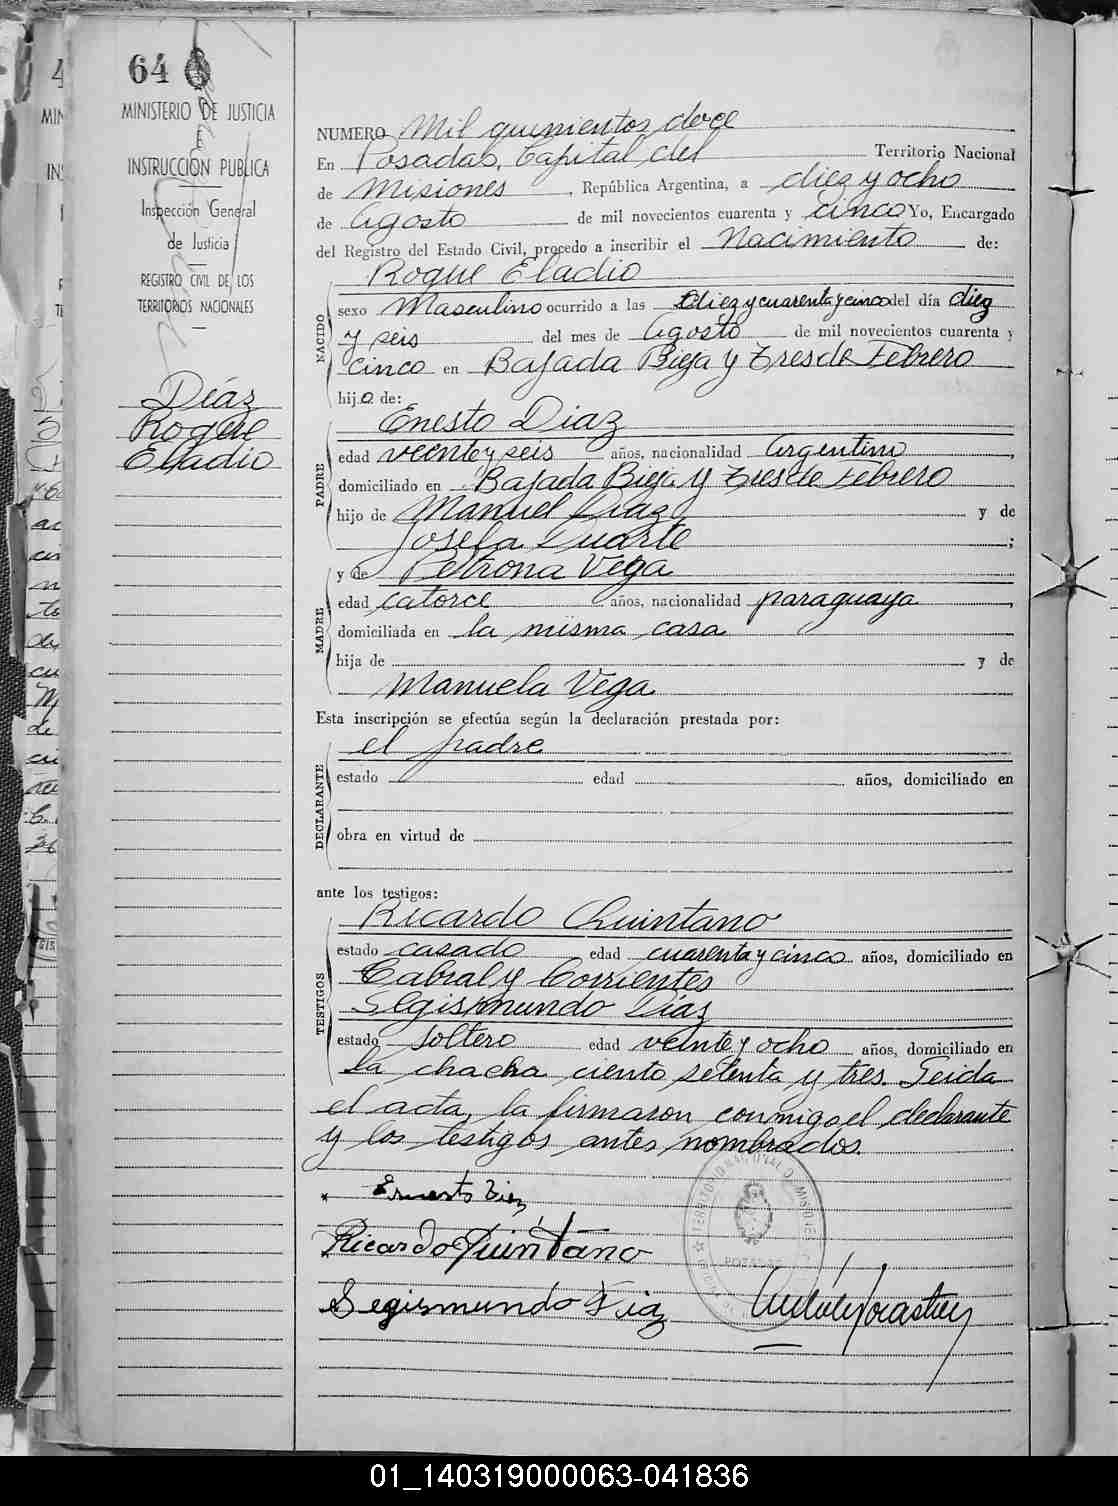 64
MINISTERIO DE JUSTICIA
INSTRUCCION PUBLICA
Inspección General
de Justicia
REGISTRO CIVIL DE LOS
TERRITORIOS NACIONALES
Díaz
Roque
Eladio
NUMERO Mil quinientos doce
En Posadas, Capital del Territorio Nacional
de Misiones, República Argentina, a diez y ocho
de Agosto de mil novecientos cuarenta y cinco Yo, Encargado
del Registro del Estado Civil, procedo a inscribir el Nacimiento de:
Roque Eladio
NACIDO
sexo Masculino ocurrido a las diez y cuarenta y cinco del día diez
y seis del mes de Agosto de mil novecientos cuarenta y
cinco en Bajada Bieja y Tres de Febrero
hijo de:
Enesto Diaz
PADRE
edad veinte y seis años, nacionalidad Argentino,
domiciliado en Bajada Bieja y Tres de Febrero
hijo de Manuel Diaz y de
Josefa Duarte;
y de Petrona Vega
MADRE
edad catorce años, nacionalidad paraguaya,
domiciliada en la misma casa
hija de y de
Manuela Vega
Esta inscripción se efectúa según la declaración prestada por:
el padre
DECLARANTE
estado edad años, domiciliado en
obra en virtud de
ante los testigos:
Ricardo Quintano
TESTIGOS
estado casado edad cuarenta y cinco años, domiciliado en
Cabral y Corrientes
Segismundo Diaz
estado soltero edad veinte y ocho años, domiciliado en
la chacra ciento setenta y tres. Leida
el acta, la firmaron conmigo el declarante
y los testigos antes nombrados.
Ernesto Diez
Ricardo Quintano
Segismundo Diaz
TERRITORIO NACIONAL DE MISIONES
POSADAS
01_140319000063-041836